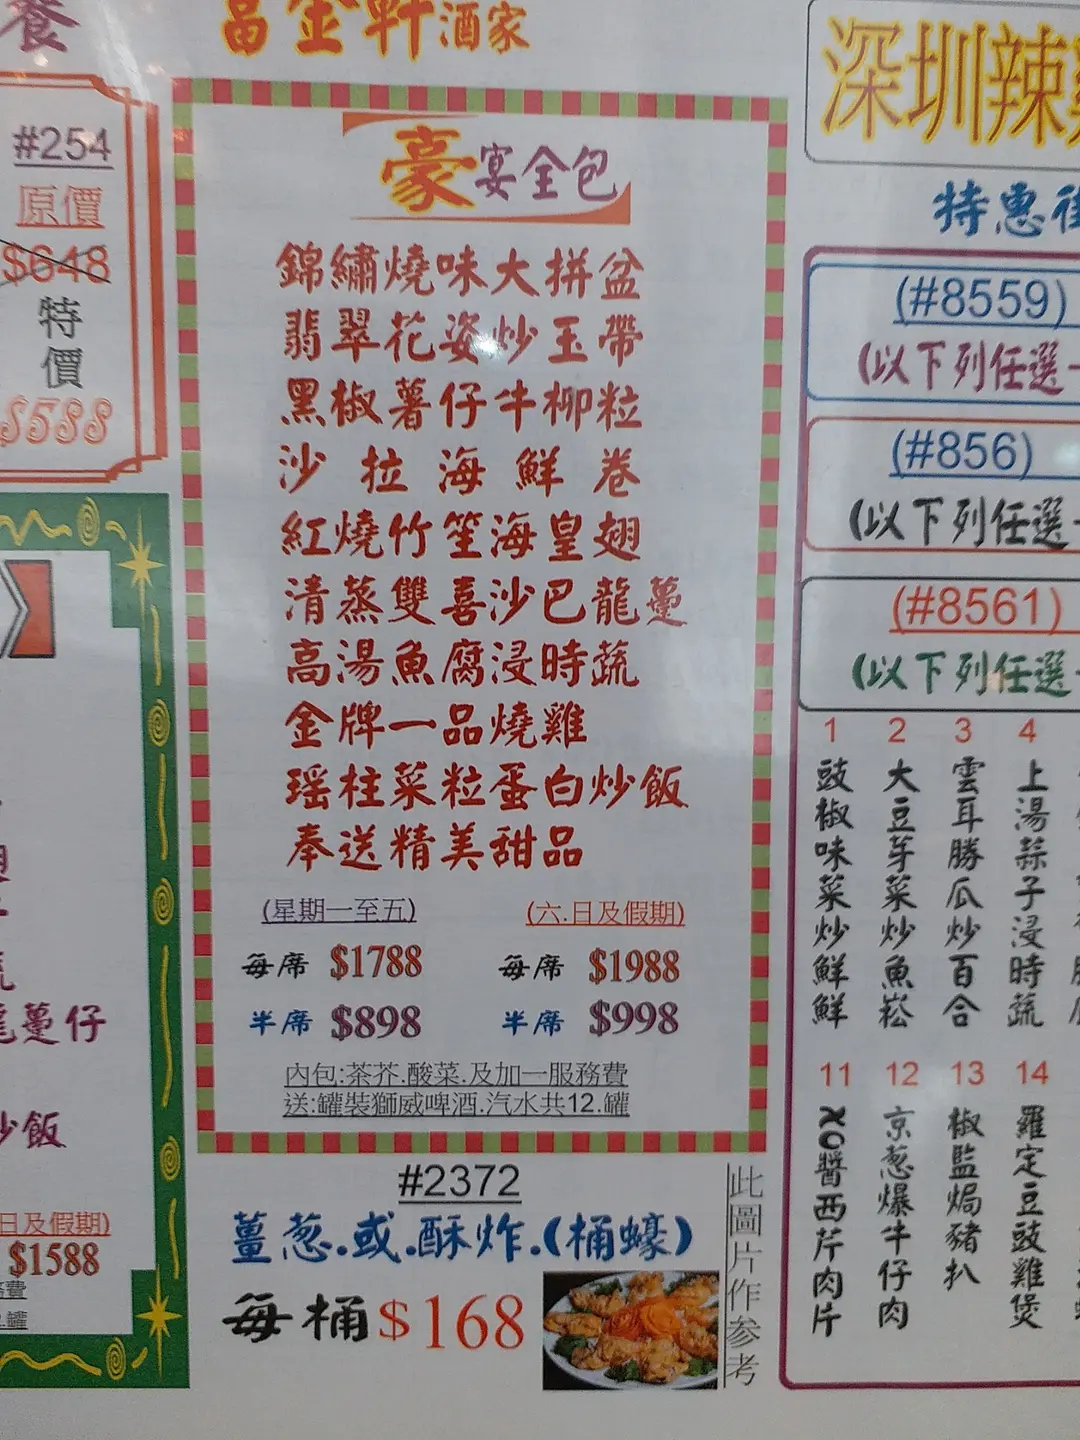 餐
富金軒酒家
#254
原價
$648
特
價
$588
豪宴全包
錦繡燒味大拼盆
翡翠花姿炒玉帶
黑椒薯仔牛柳粒
沙拉海鮮卷
紅燒竹笙海皇翅
清蒸雙喜沙巴龍躉
高湯魚腐浸時蔬
金牌一品燒雞
瑶柱菜粒蛋白炒飯
奉送精美甜品
(星期一至五)
(六.日及假期)
每席 $1788
每席 $1988
半席 $898
半席 $998
內包:茶芥.酸菜.及加一服務費
送:罐裝獅威啤酒.汽水共12.罐
#2372
薑葱.或.酥炸.(桶蠔)
每桶$168
此圖片作參考
龍躉仔
炒飯
日及假期)
$1588
務費
.罐
深圳辣雞
特惠
(#8559)
(以下列任選
(#856)
(以下列任選
(#8561)
(以下列任選
1 豉椒味菜炒鮮鮮
2 大豆芽菜炒魚崧
3 雲耳勝瓜炒百合
4 上湯蒜子浸時蔬
11 XO醬西芹肉片
12 京葱爆牛仔肉
13 椒監焗豬扒
14 羅定豆豉雞煲